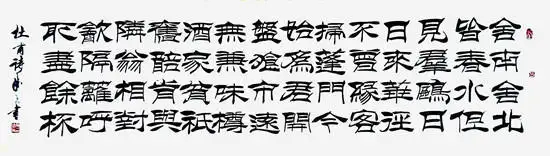 舍南舍北
皆春水但
見羣鷗日
日來華徑
不曾緣客
掃蓬門今
始爲君開
盤飧市遠
無兼味樽
酒家貧祇
舊醅肯與
隣翁相對
飲隔籬呼
取盡餘杯
杜甫詩